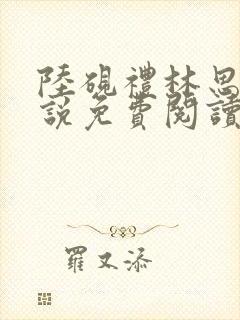 陸硯禮林思
說免費閱讀
羅又添